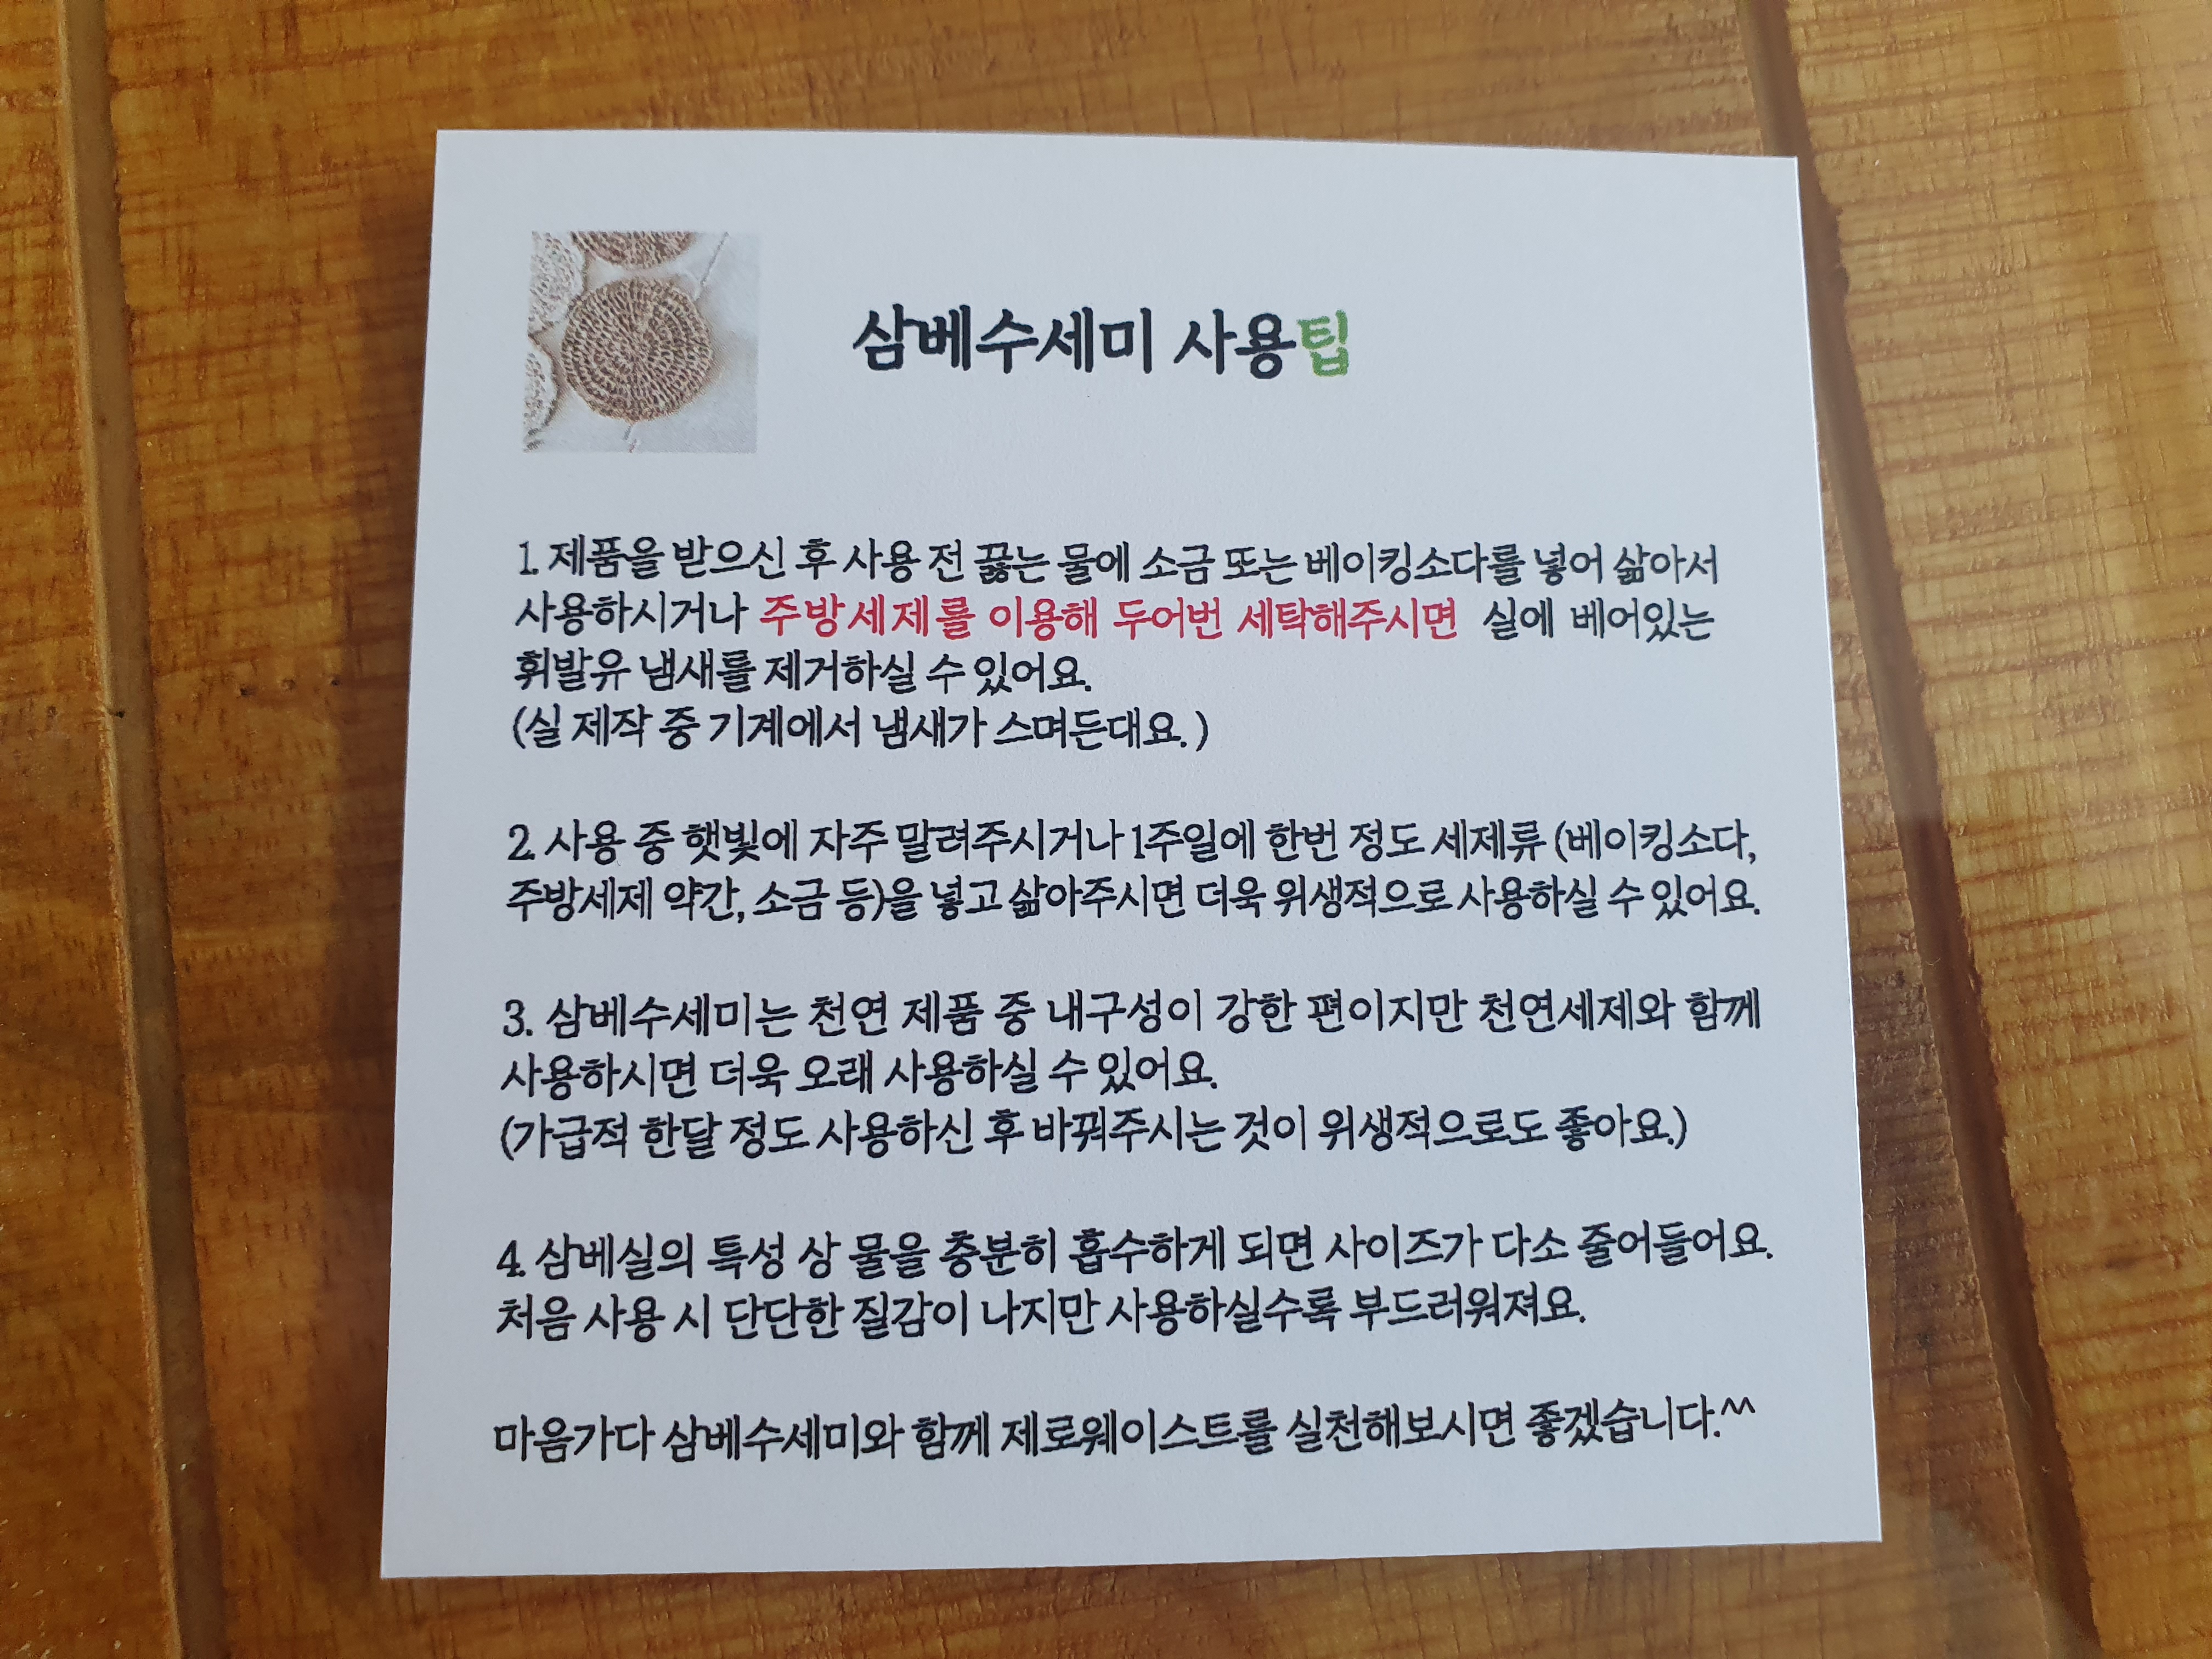 삼베수세미 사용팁
1. 제품을 받으신 후 사용 전 끓는 물에 소금 또는 베이킹소다를 넣어 삶아서
사용하시거나 주방세제를 이용해 두어번 세탁해주시면 실에 베어있는
휘발유 냄새를 제거하실 수 있어요.
(실 제작 중 기계에서 냄새가 스며든대요.)
2. 사용 중 햇빛에 자주 말려주시거나 1주일에 한번 정도 세제류 (베이킹소다,
주방세제 약간, 소금 등)을 넣고 삶아주시면 더욱 위생적으로 사용하실 수 있어요.
3. 삼베수세미는 천연 제품 중 내구성이 강한 편이지만 천연세제와 함께
사용하시면 더욱 오래 사용하실 수 있어요.
(가급적 한달 정도 사용하신 후 바꿔주시는 것이 위생적으로도 좋아요.)
4. 삼베실의 특성 상 물을 충분히 흡수하게 되면 사이즈가 다소 줄어들어요.
처음 사용 시 단단한 질감이 나지만 사용하실수록 부드러워져요.
마음가다 삼베수세미와 함께 제로웨이스트를 실천해보시면 좋겠습니다.^^